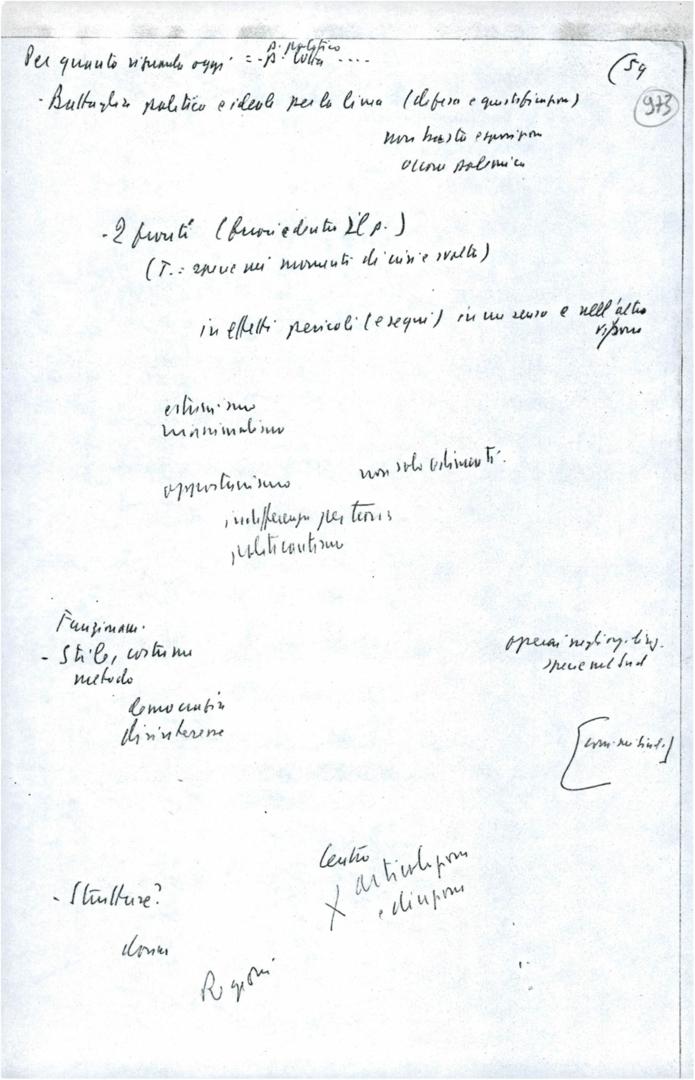 Per quanto riguarda oggi = - p. politico
- p. lotta ....
(59
973
- Battaglia politica e ideale per la linea (difesa e giustificazione)
non basta esposizione
occorre polemica
- 2 fronti (fuori e dentro il p.)
(T.: specie nei momenti di crisi e svolta)
in effetti pericoli (e seguiti) in un senso e nell'altro
estremismo
massimalismo
opportunismo
non solo
indifferenza per teoria
politicantismo
Funzionam.
- Stile, costume
metodo
democrazia
disinteresse
operai negli org. dirig.
specie nel Sud
- Strutture?
Centro
X articolazioni
e direzione
donne
Regioni